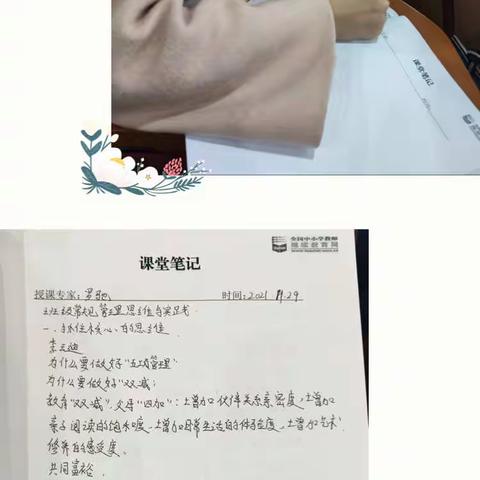 课堂笔记
全国中小学教师
继续教育网
课堂笔记
授课专家:罗驰 时间:2021 11.29
班级常规管理思维与实践
一、抓住核心的思维
李云迪
为什么要做好“五项管理”
为什么要做好“双减”
教育“双减”,父母“四加”:增加伙伴关系亲密度,增加
亲子阅读的饱和度,增加日常生活的体验度,增加艺术
修养的感受度
共同富裕